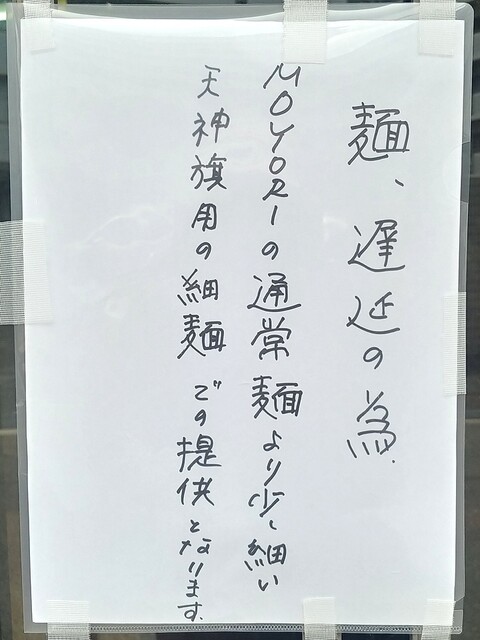 麺、遅延の為
MOYORIの通常麺より少し細い
天神旗用の細麺での提供となります.